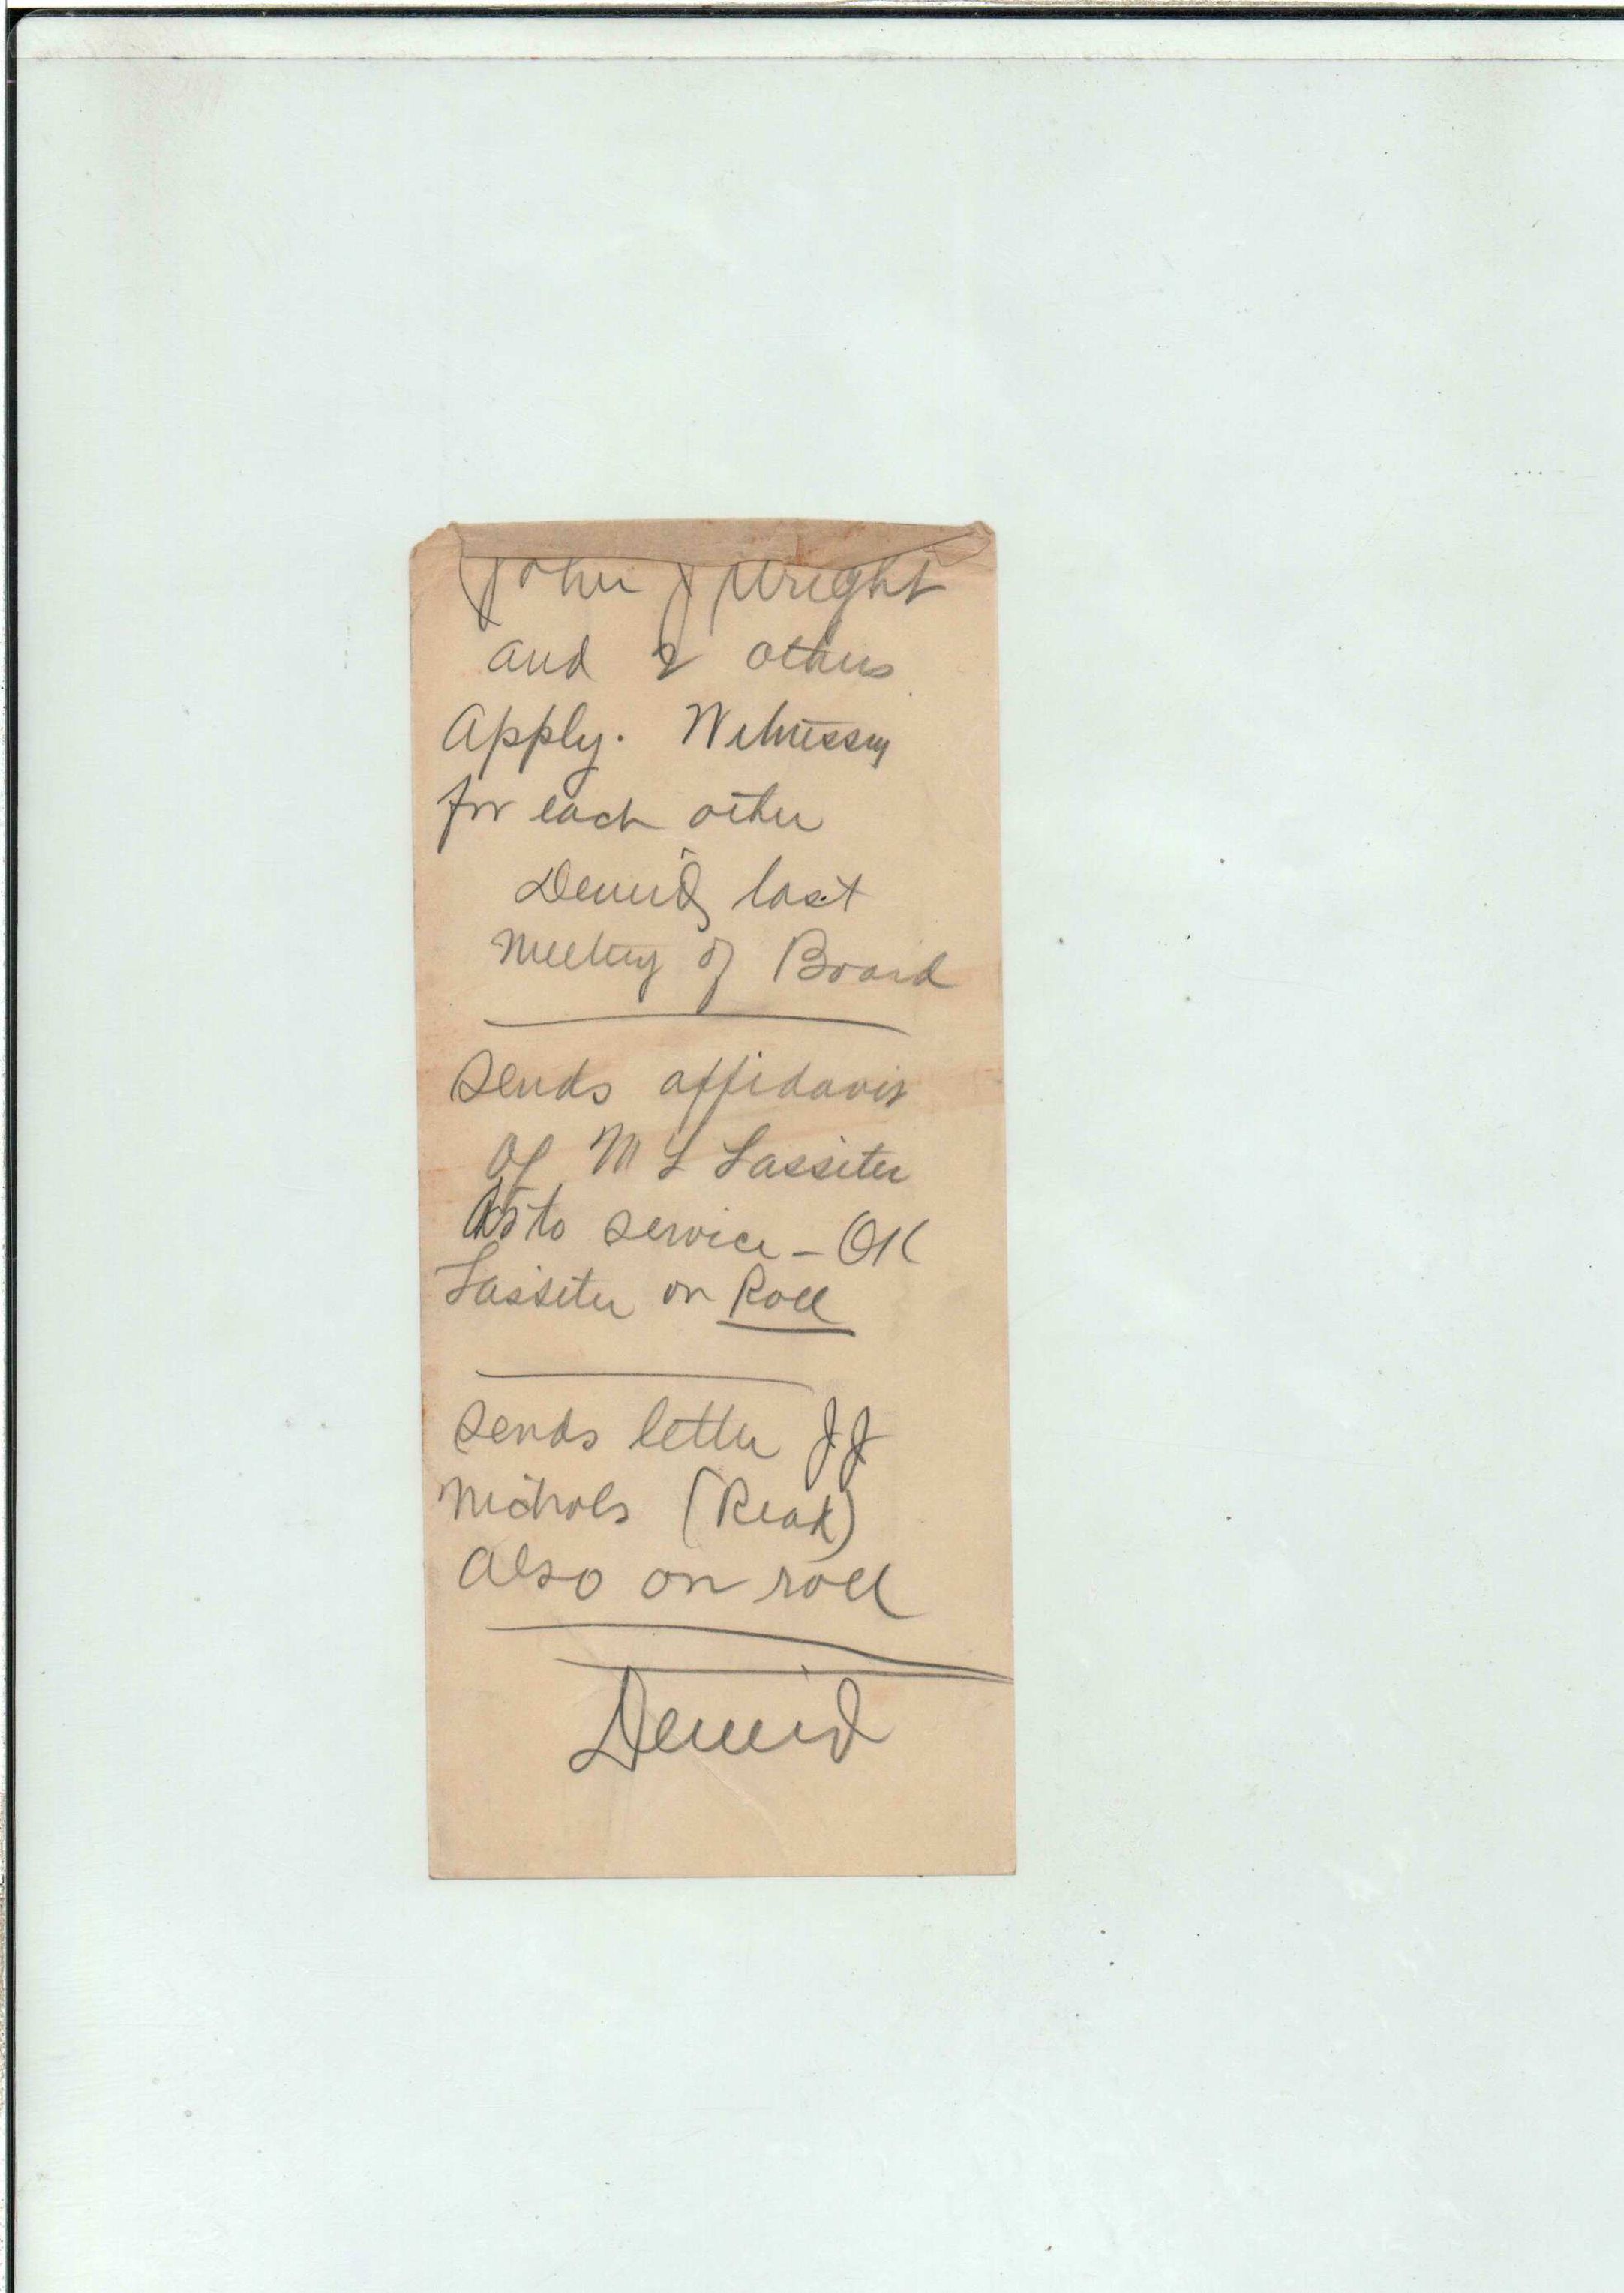 John J Wright
and 2 others
Apply. Witnesses
for each other
Denied last
meeting of Board
Sends affidavit
of M L Lassiter
As to service - OK
Lassiter on Roll
Sends letter J J
Nichols (Read)
also on roll
Denied